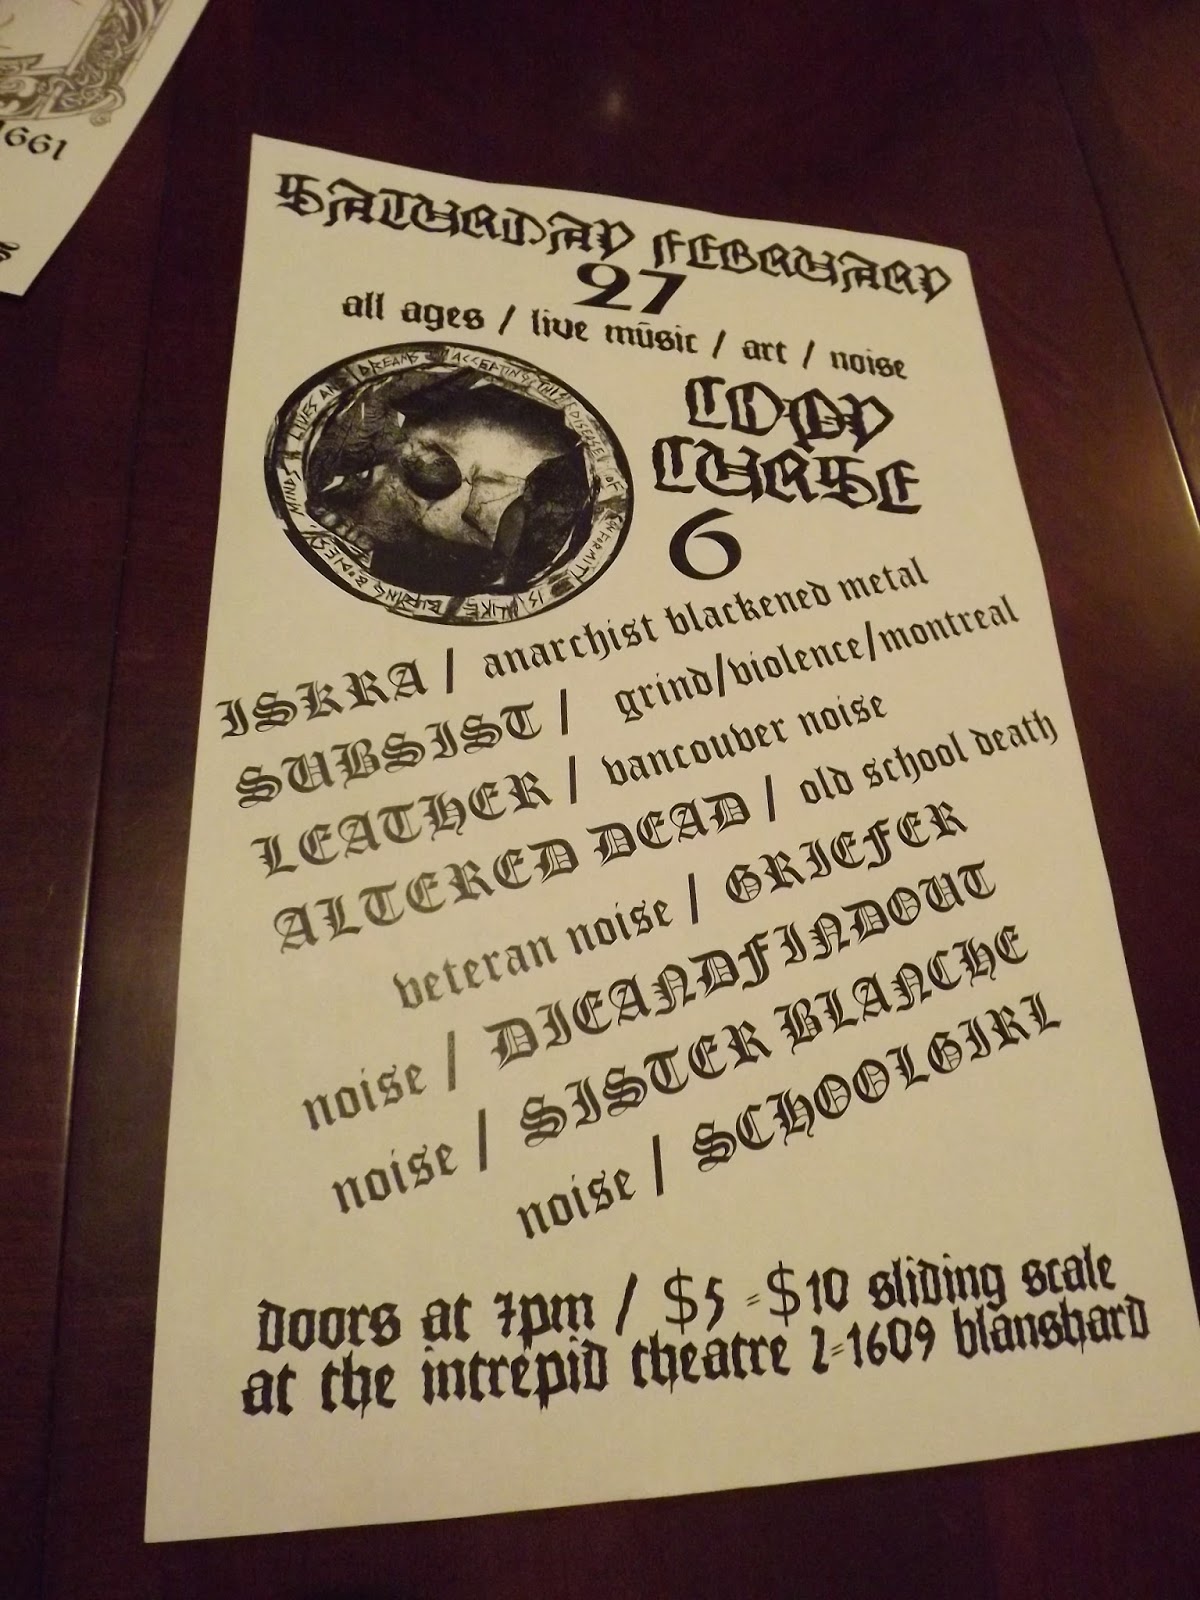 1661
SATURDAY FEBRUARY
27
all ages / live mūsic / art / noise
COPY
CURSE
6
MINDS LIVES AND DREAMS ACCEPTING THIS DISEASE OF CONFORMITY IS LIKE BURNING BODIES
ISKRA / anarchist blackened metal
SUBSIST / grind/violence/montreal
LEATHER / vancouver noise
ALTERED DEAD / old school death
veteran noise / GRIEFER
noise / DIEANDFINDOUT
noise / SISTER BLANCHE
noise / SCHOOLGIRL
doors at 7pm / $5 - $10 sliding scale
at the intrepid theatre 2-1609 blanshard